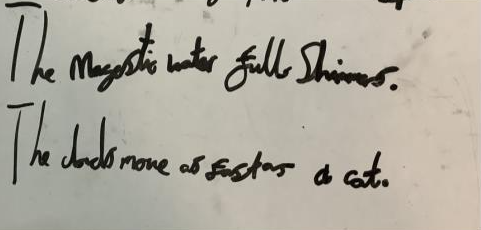 The Magestic water falls Shimmers.
The clouds move as fast as a cat.